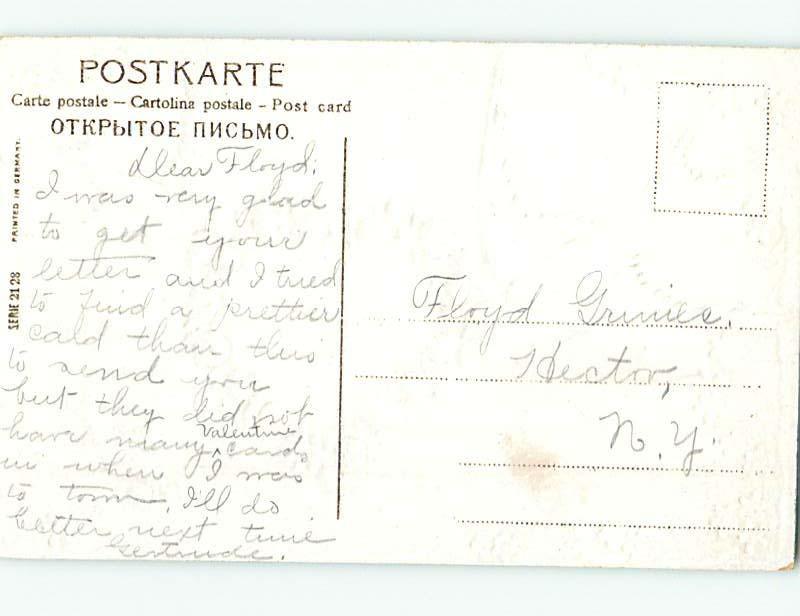 POSTKARTE
Carte postale – Cartolina postale – Post card
ОТКРЫТОЕ ПИСЬМО.
PRINTED IN GERMANY.
SERIE 2128
Dear Floyd:
I was very glad
to get your
letter and I tried
to find a prettier
card than this
to send you
but they did not
have many Valentine cards
in when I was
to town, I'll do
better next time
Gertrude.
Floyd Grimes.
Hector,
N.Y.